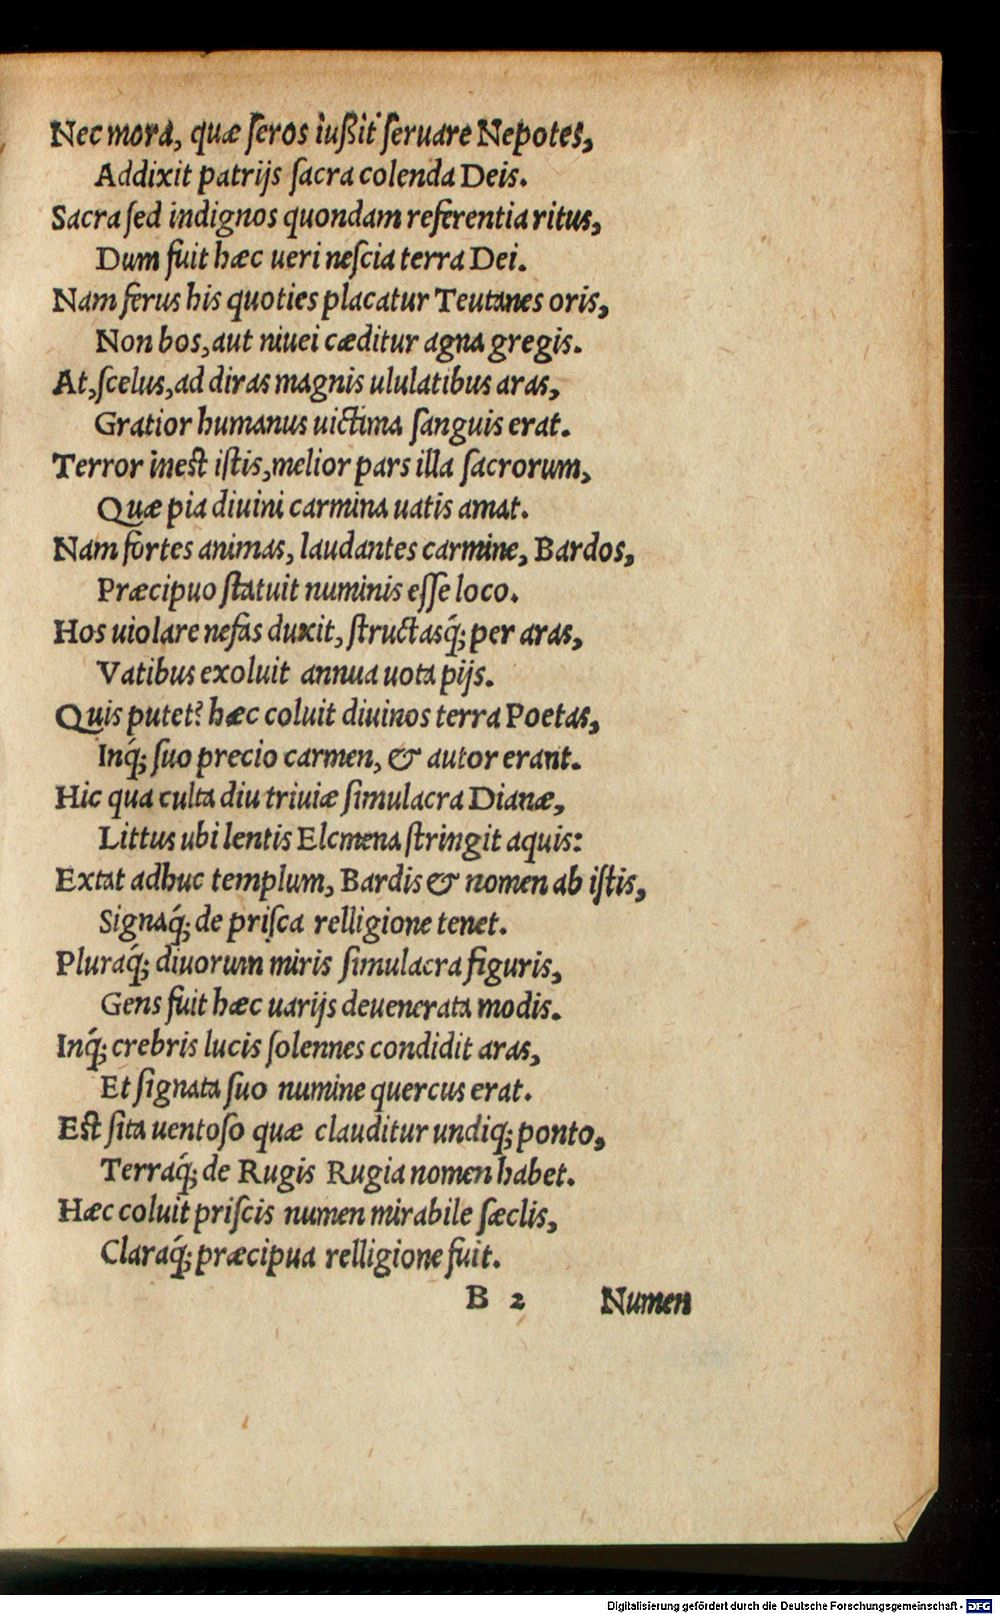 Nec mora, quæ ſeros iußit ſeruare Nepotes,
Addixit patrijs ſacra colenda Deis.
Sacra ſed indignos quondam referentia ritus,
Dum fuit hæc ueri neſcia terra Dei.
Nam ferus his quoties placatur Teutanes oris,
Non bos, aut niuei cæditur agna gregis.
At, ſcelus, ad diras magnis ululatibus aras,
Gratior humanus uictima ſanguis erat.
Terror ineſt iſtis, melior pars illa ſacrorum,
Quæ pia diuini carmina uatis amat.
Nam fortes animas, laudantes carmine, Bardos,
Præcipuo ſtatuit numinis eſſe loco.
Hos uiolare nefas duxit, ſtructasq́; per aras,
Vatibus exoluit annua uota pijs.
Quis putet? hæc coluit diuinos terra Poetas,
Inq́; ſuo precio carmen, & autor erant.
Hic qua culta diu triuiæ ſimulacra Dianæ,
Littus ubi lentis Elcmena ſtringit aquis:
Extat adhuc templum, Bardis & nomen ab iſtis,
Signaq́; de priſca relligione tenet.
Pluraq́; diuorum miris ſimulacra figuris,
Gens fuit hæc uarijs deuenerata modis.
Inq́; crebris lucis ſolennes condidit aras,
Et ſignata ſuo numine quercus erat.
Eſt ſita uentoſo quæ clauditur undiq; ponto,
Terraq́; de Rugis Rugia nomen habet.
Hæc coluit priſcis numen mirabile ſæclis,
Claraq́; præcipua relligione fuit.
B 2 Numen
Digitalisierung gefördert durch die Deutsche Forschungsgemeinschaft - DFG